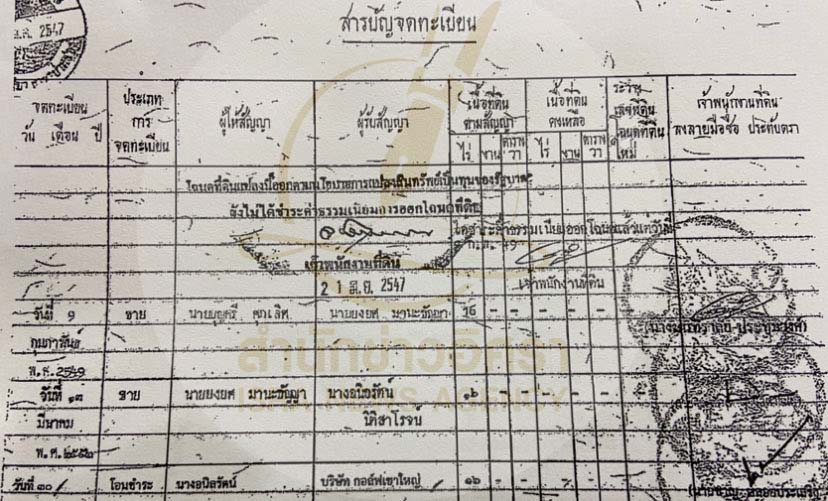 ส.ค. 2547
สารบัญจดทะเบียน
จดทะเบียน วัน เดือน ปี
ประเภท การ จดทะเบียน
ผู้ให้สัญญา
ผู้รับสัญญา
เนื้อที่ดิน ตามสัญญา
ไร่ งาน ตาราง วา
เนื้อที่ดิน คงเหลือ
ไร่ งาน ตาราง วา
ระวาง เลขที่ดิน โฉนดที่ดิน ใหม่
เจ้าพนักงานที่ดิน ลงลายมือชื่อ ประทับตรา
โฉนดที่ดินแปลงนี้ออกตามนโยบายการแปลงสินทรัพย์เป็นทุนของรัฐบาล
ยังไม่ได้ชำระค่าธรรมเนียมการออกโฉนดที่ดิน
ได้ชำระค่าธรรมเนียมออกโฉนดแล้วแต่วันที่
ก.พ. 49
เจ้าพนักงานที่ดิน
21 มิ.ย. 2547
เจ้าพนักงานที่ดิน
วันที่ ๑ ขาย นายบุญศรี ศุภเลิศ นายยงยศ มานะธัญญา 16 - - - - -
กุมภาพันธ์
พ.ศ. 2549
สำนักข่าวอิศรา
ISRA NEWS AGENCY
วันที่ ๑๓ ขาย นายยงยศ มานะธัญญา นางอนิลรัตน์ ๑๖ - - - - -
มีนาคม นิติสาโรจน์
พ.ศ. ๒๕๕๒
วันที่ ๓๐ โอนชำระ นางอนิลรัตน์ บริษัท กอล์ฟเขาใหญ่ ๑๖ - - - - -